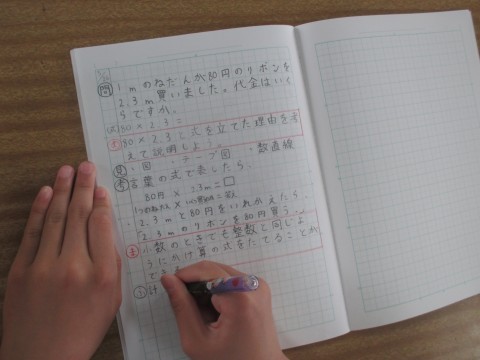 問 1mのねだんが80円のリボンを
2.3m買いました。代金はいく
らですか。
80×2.3=
80×2.3と式を立てた理由を考
えて説明しよう。
見・図 ・テープ図 ・数直線
考 言葉の式で表したら、
80円 × 2.3m=□
・2.3mと80円をいれかえたら、
2.3mのリボンを80円買う
ま 小数のときでも整数と同じよ
うにかけ算の式をたてることが
でき